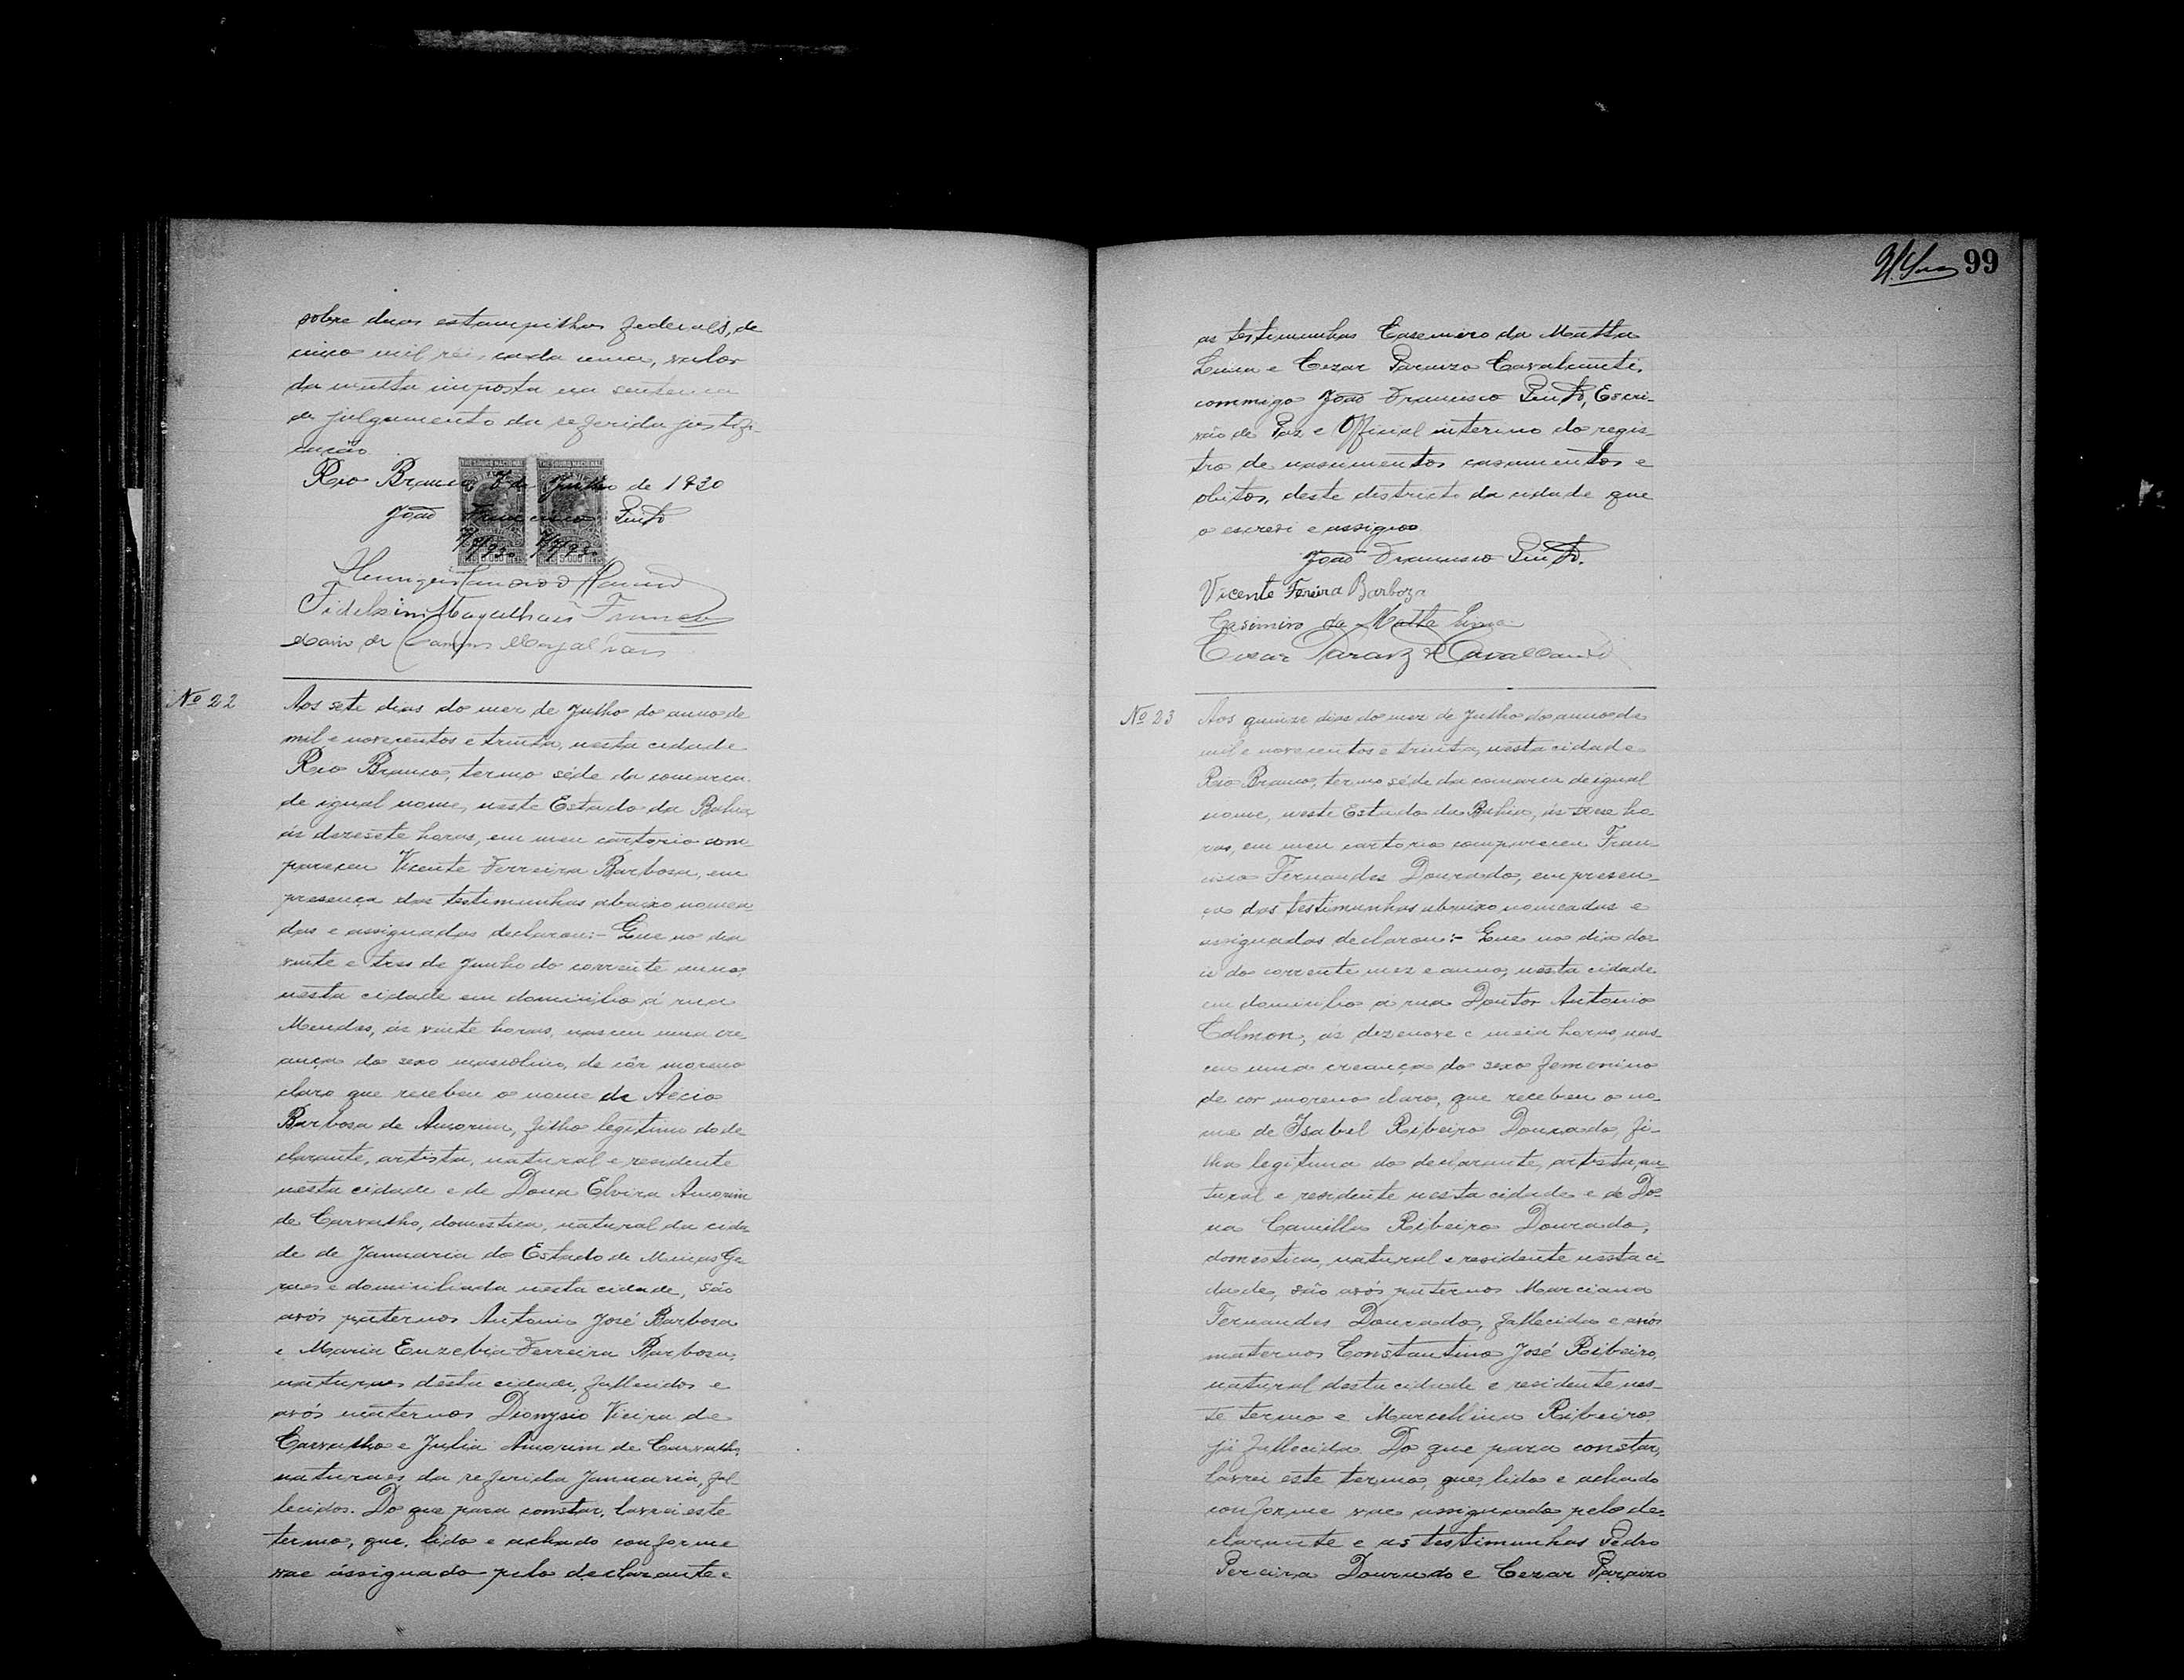 sobre duas estampilhas federaes, de
cinco mil réis cada uma, valor
da multa imposta na sentença
de julgamento da referida justifi-
cação
Rio Branco, 7 de Julho de 1930
João Francisco Pinto
THESOURO NACIONAL THESOURO NACIONAL
7/7/930 7/7/930
Fidelsino Magalhães Franca
de Campos Magalhães
Nº 22
Aos sete dias do mez de Julho do anno de
mil e novecentos e trinta, nesta cidade
Rio Branco, termo séde da comarca
de igual nome, neste Estado da Bahia,
ás dezesete horas, em meu cartorio com-
pareceu Vicente Ferreira Barbosa, em
presença das testimunhas abaixo nomea-
das e assignadas declarou:- Que no dia
vinte e tres de Junho do corrente anno,
nesta cidade em domicilio á rua
Mendes, ás vinte horas, nasceu uma cre-
ança do sexo masculino, de côr moreno
claro que recebeu o nome de Aecio
Barbosa de Amorim, filho legitimo do de-
clarante, artista, natural e residente
nesta cidade e de Dona Elvira Amorim
de Carvalho, domestica, natural da cida-
de de Januaria do Estado de Minas Ge-
raes e domiciliada nesta cidade, são
avós paternos Antonio José Barbosa
e Maria Euzebia Ferreira Barbosa,
naturaes desta cidade, fallecidos e
avós maternos Dionysio Vieira de
Carvalho e Julia Amorim de Carvalho,
naturaes da referida Januaria, fal-
lecidos. Do que para constar, lavrei este
termo, que, lido e achado conforme
vae assignado pelo declarante e
99
as testimunhas Casemiro da Matta
Lima e Cezar Paraizo Cavalcanti,
commigo João Francisco Pinto, Escri-
vão de Paz e Official interino do regis-
tro de nascimentos casamentos e
obitos, deste districto da cidade que
o escrevi e assigno
João Francisco Pinto.
Vicente Fereira Barboza
Casimiro da Matta Lima
Cezar Paraizo Cavalcanti
Nº 23
Aos quinze dias do mez de Julho do anno de
mil e novecentos e trinta, nesta cidade
Rio Branco, termo séde da comarca de igual
nome, neste Estado da Bahia, ás treze ho-
ras, em meu cartorio compareceu Fran-
cisco Fernandes Dourado, em presen-
ça das testimunhas abaixo nomeadas e
assignadas declarou:- Que no dia dos
is do corrente mez e anno, nesta cidade
em domicilio á rua Doutor Antonio
Calmon, ás dezenove e meia horas, nas-
ceu uma creança do sexo femenino
de cor moreno claro, que recebeu o no-
me de Isabel Ribeiro Dourado, fi-
lha legitima do declarante, artista, na-
tural e residente nesta cidade e de Do-
na Camilla Ribeiro Dourado,
domestica, natural e residente nesta ci-
dade, são avós paternos Marciana
Fernandes Dourado, fallecida e avós
maternos Constantino José Ribeiro,
natural desta cidade e residente nes-
te termo e Marcellina Ribeiro,
já fallecida. Do que para constar,
lavrei este termo, que, lido e achado
conforme vae assignado pelo de-
clarante e as testimunhas Pedro
Pereira Dourado e Cezar Paraizo